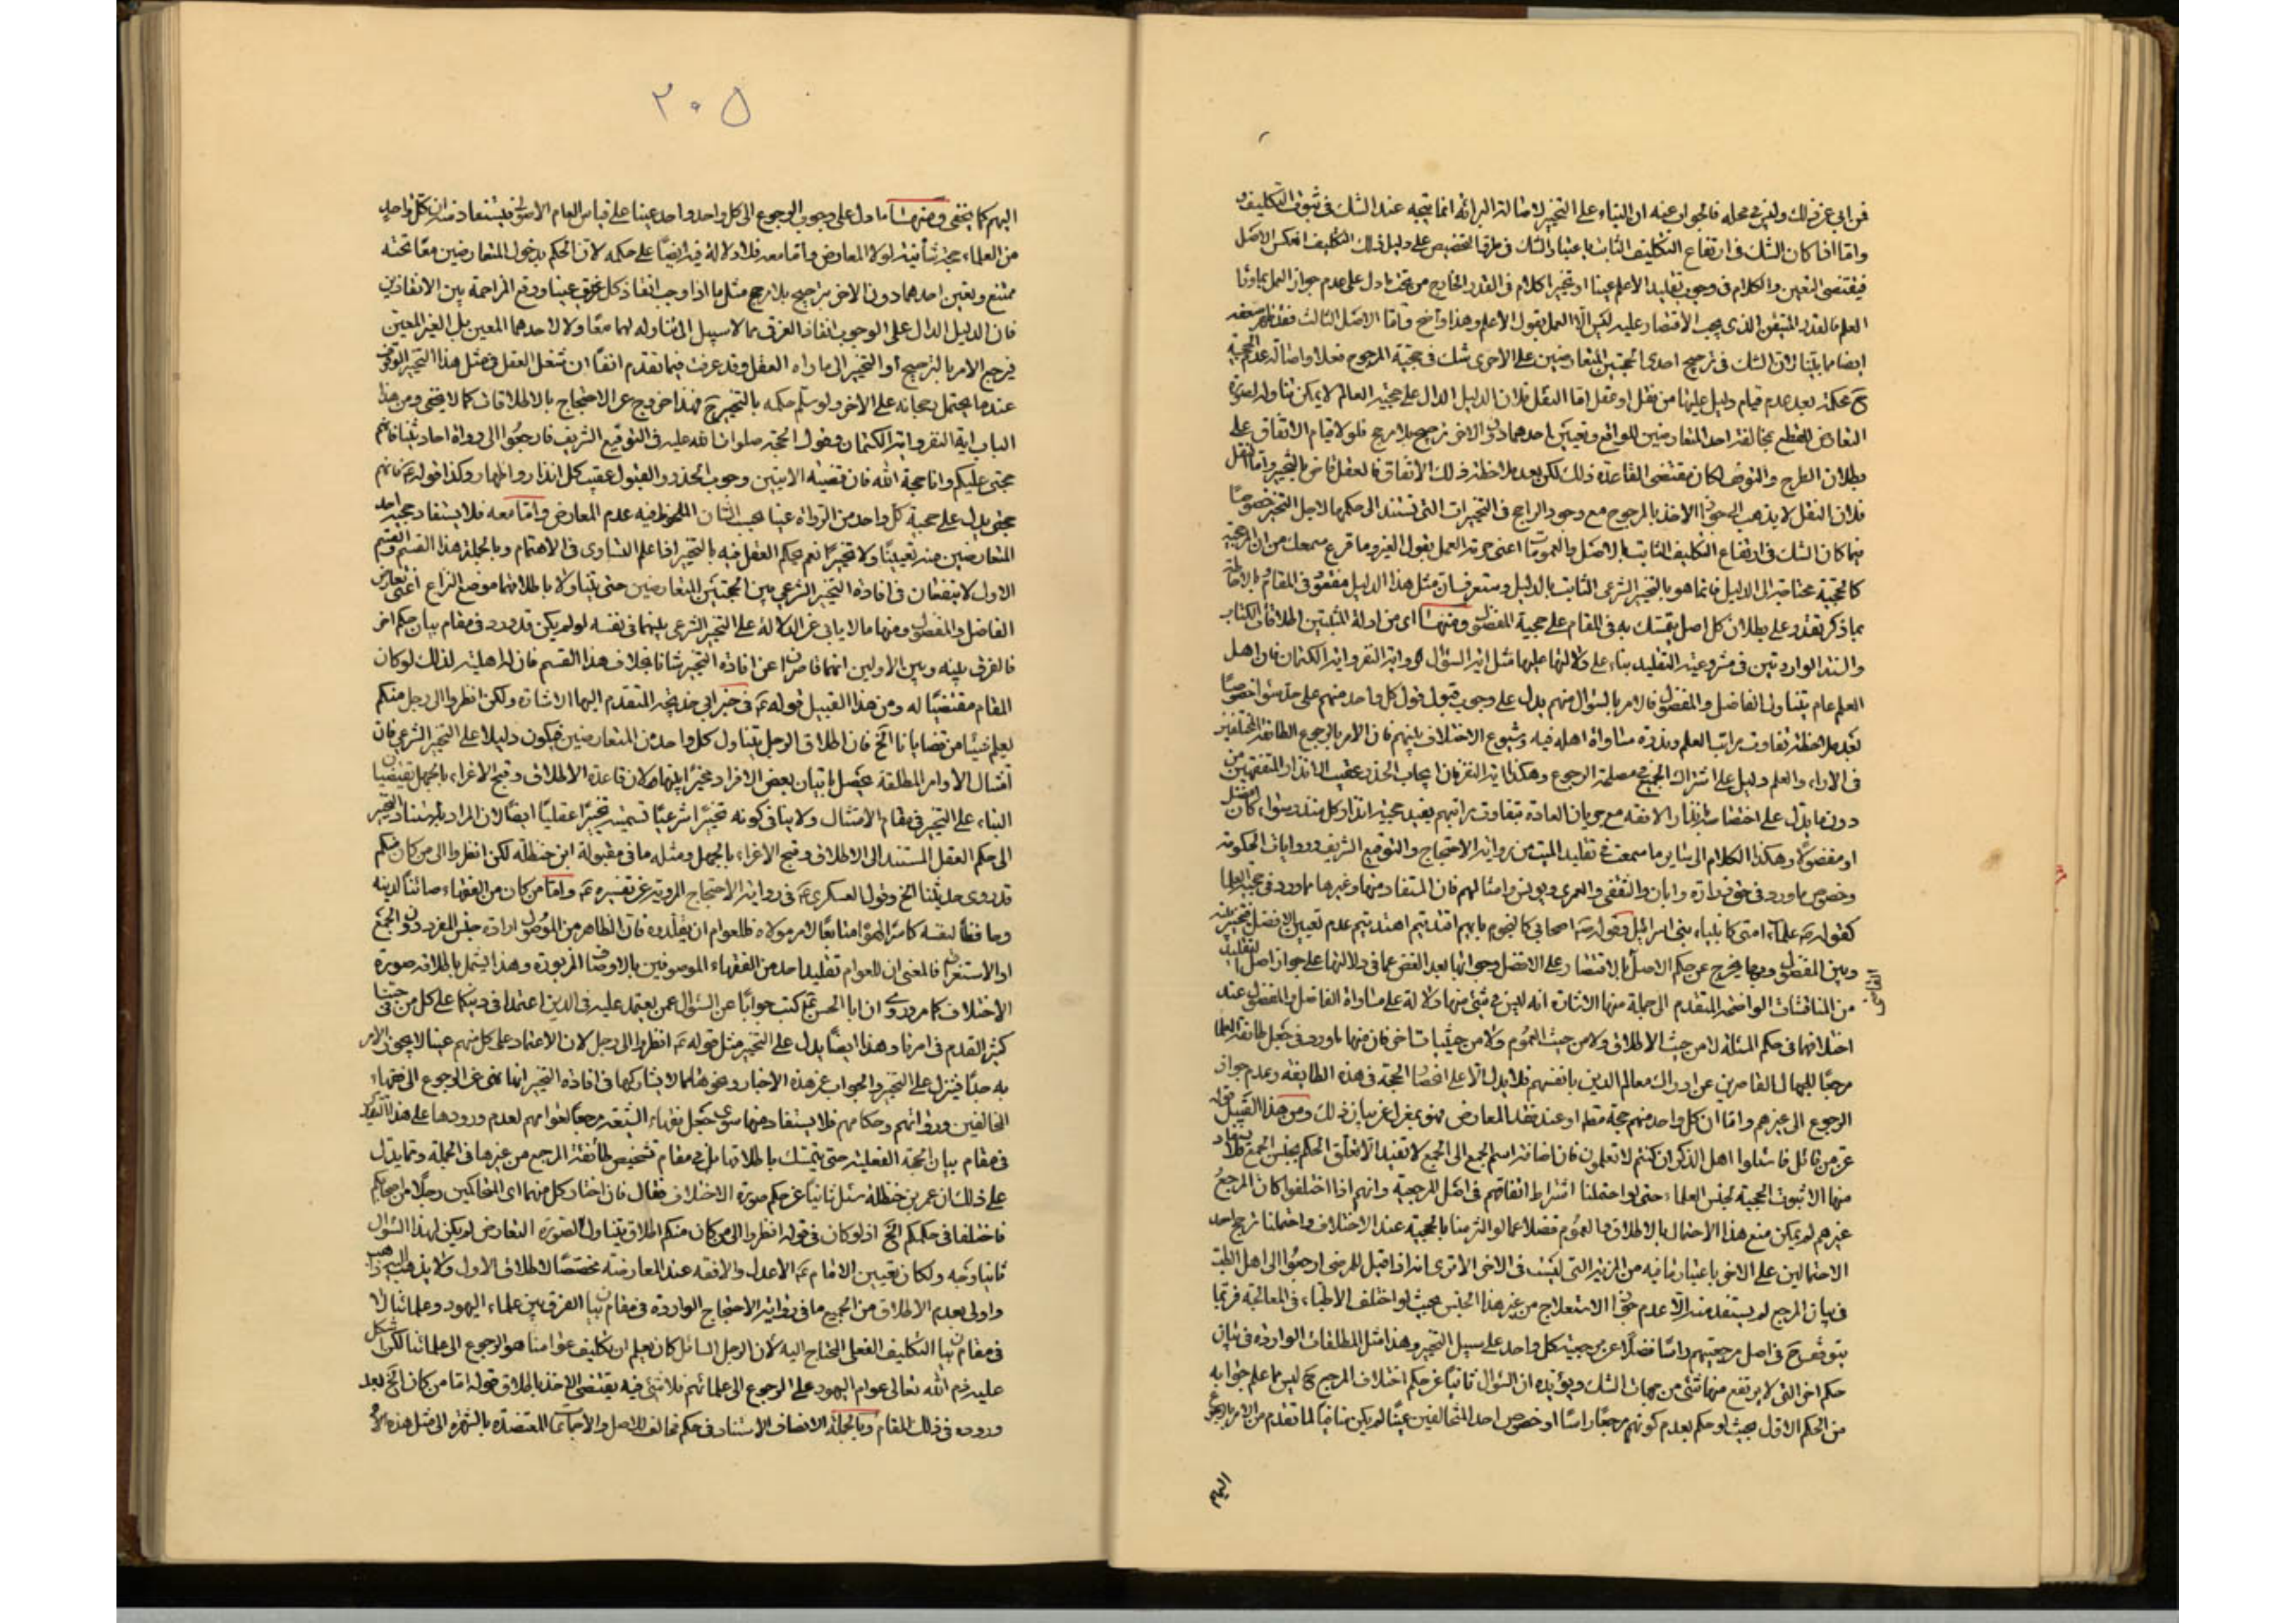 فن اين عرف ذلك وليس في محله فالجواب عنه ان البناء على التخيير لاصالة البرائة انما يتجه عند الشك في ثبوت التكليف
واما اذا كان الشك في ارتفاع التكليف الثابت باعتبار الشك في طرق التخصيص على دليل ذلك التكليف انعكس الاصل
فيقتضى التعيين والكلام في وجوب تقليد الأعلم عينا او تخييرا كلام في القدر الخارج من تحت ما دل على عدم جواز العمل بما وراء
العلم فالقدر المتيقن الذي يجب الاقتصار عليه ليس الا العمل بقول الأعلم وهذا واضح واما الاصل الثالث فقد ظهر ضعفه
ايضا مما بيّنا لان الشك في ترجيح احدى الحجتين المتعارضتين على الاخرى شك في حجية المرجوح فعلا واصالة عدم الحجية
ح محكمة بعد عدم قيام دليل عليها من نقل او عقل اما النقل فلان الدليل الدال على حجية العالم لا يمكن تناوله لصورة
التعارض للقطع بمخالفة احد المتعارضين للواقع وتعيين احدهما دون الاخر ترجيح بلا مرجح فلولا قيام الاتفاق على
بطلان الطرح والتوقف لكان مقتضى القاعدة ذلك لكن بعد ملاحظة ذلك الاتفاق فالعقل قاض بالتخيير واما العقل
فلان العقل لا يذهب الى جواز الاخذ بالمرجوح مع وجود الراجح في التخييرات التي تستند الى حكمها لاجل التخيير خصوصا
فيما كان الشك في ارتفاع التكليف الثابت بالاصل والعمومات اعنى حرمة العمل بقول الغير وما قرع سمعك من ان المرجعية
كالحجية محتاجة الى الدليل فانما هو بالتخيير الشرعي الثابت بالدليل وستعرف ان مثل هذا الدليل مفقود في المقام وبالاحاطة
بما ذكر تقدر على بطلان كل اصل يتمسك به في المقام على حجية المفضول ومنها اى من ادلة المثبتين اطلاقات الكتاب
والسنة الواردتين في مشروعية التقليد بناء على دلالتهما عليها مثل اية السؤال واية النفر واية الكتمان فان اهل
العلم عام يتناول الفاضل والمفضول فالامر بالسؤال منهم يدل على وجوب قبول قول كل واحد منهم على حد سواء خصوصا
بعد ملاحظة تفاوت مراتب العلم وندرة مساواة اهله فيه وشيوع الاختلاف بينهم فان الامر بالرجوع الى الطائفة المختلفين
في الاراء والعلم دليل على اشتراك الجميع في مصلحة الرجوع وهكذا اية النفر فان ايجاب الحذر عقيب انذار المتفقهين من
دون ما يدل على اختصاصه بانذار الافقه مع جريان العادة بتفاوت مراتبهم يفيد حجية انذار كل منذر سواء كان افضل
او مفضولا وهكذا الكلام الى ساير ما سمعت في تقليد الميت من رواية الاحتجاج والتوقيع الشريف وروايات الحكومة
وخصوص ما ورد في حق زرارة وابان والثقفى والعمرى ويونس وامثالهم فان المستفاد منها وغيرها مما ورد في حجية العلماء
كقوله ص علماء امتى كانبياء بنى اسرائيل وقوله ص اصحابى كالنجوم بايهم اقتديتم اهتديتم عدم تعيين الافضل فتخيير بينه
وبين المفضول وبها يخرج عن حكم الاصل بالاقتصار على الافضل وجوابها بعد الغض عما في دلالتها على جواز اصل التقليد
من المناقشات الواضحة المتقدم الى جملة منها الاشارة انه ليس في شئ منها دلالة على مساواة الفاضل والمفضول عند
اختلافهما في حكم المسئلة لا من حيث الاطلاق ولا من حيث العموم ولا من حيثيات اخر فان منها ما ورد في جعل طائفة العلماء
مرجعا للجهال القاصرين عن ادراك معالم الدين بانفسهم فلا يدل الا على انحصار الحجة في هذه الطايفة وعدم جواز
الرجوع الى غيرهم واما ان كل واحد منهم حجة مطلقا او عند فقد المعارض فهو بمعزل عن بيان ذلك ومن هذا القبيل قوله
عز من قائل فاسئلوا اهل الذكر ان كنتم لا تعلمون فان اضافة اسم الجمع الى الجمع لا تفيد الا تعلق الحكم بجنس الجمع فلا يستفاد
منها الا ثبوت الحجية لجنس العلماء حتى لو احتملنا اشتراط اتفاقهم في اصل المرجعية وانهم اذا اختلفوا كان المرجع
غيرهم لم يمكن منع هذا الاحتمال بالاطلاق والعموم فضلا عما لو التزمنا بالحجية عند الاختلاف واحتملنا ترجيح احد
الاحتمالين على الاخر باعتبار ما فيه من المزية التي ليست في الاخر الا ترى انه اذا قيل للمريض ارجعوا الى اهل الطب
في بيان المرجع لم يستفد منه الا عدم جواز الاستعلاج من غير هذا الجنس بحيث لو اختلف الاطباء في المعالجة فربما
يتوقف ح في اصل مرجعيتهم راسا فضلا عن مرجعية كل واحد على سبيل التخيير وهذا مثل المطلقات الواردة في بيان
حكم اخر التي لا يرتفع منها شئ من جهات الشك ويؤيده ان السؤال ثانيا عن حكم اختلاف المرجع ح ليس مما علم جوابه
من الحكم الاول بحيث لو حكم بعدم كونهم مرجعا راسا او خصوص احد المتخالفين عينا لم يكن منافيا لما تقدم من الامر بالرجوع
اليهم
٢٠٥
اليهم كما يخفى ومنها ما دل على وجوب الرجوع الى كل واحد واحد عينا على قياس العام الاصولى فيستفاد منه ان كل واحد
من العلماء حجة شأنية لولا المعارض واما معه فلا دلالة فيه ايضا على حكمه لان الحكم بدخول المتعارضين معا تحته
ممتنع وتعين احدهما دون الاخر ترجيح بلا مرجح مثل ما اذا وجب انقاذ كل غريق عينا ووقع المزاحمة بين الانقاذين
فان الدليل الدال على الوجوب انقاذ الغرقى مما لا سبيل الى تناوله لهما معا ولا لاحدهما المعين بل الغير المعين
فيرجع الامر بالترجيح او التخيير الى ما راه العقل وقد عرفت فيما تقدم انفا ان شغل العقل في مثل هذا التخيير التوقف
عندما يحتمل رجحانه على الاخر ولو سلم حكمه بالتخيير ح فهذا خروج عن الاحتجاج بالاطلاقات كما لا يخفى ومن هذا
الباب اية النفر واية الكتمان وقول الحجة صلوات الله عليه في التوقيع الشريف فارجعوا الى رواة احاديثنا فانهم
حجتى عليكم وانا حجة الله فان قضية الايتين وجوب الحذر والقبول عقيب كل انذار واظهار وكذا قوله ع فانهم
حجتى يدل على حجية كل واحد من الرواة عينا بحسب الشان الملحوظ فيه عدم المعارض واما معه فلا يستفاد حجية احد
المتعارضين منه تعيينا ولا تخييرا نعم يحكم العقل فيه بالتخيير اذا علم التساوى في الاهتمام وبالجملة هذا القسم والقسم
الاول لا ينفعان في افادة التخيير الشرعي بين الحجتين المتعارضتين حتى يتناولا باطلاقهما موضع النزاع اعنى تعارض
الفاضل والمفضول ومنها ما لا يابى عن الدلالة على التخيير الشرعى بينهما في نفسه لو لم يكن قد ورد في مقام بيان حكم اخر
فالفرق بينه وبين الاولين انهما قاصران عن افادة التخيير شانا بخلاف هذا القسم فان له اهلية لذلك لو كان
المقام مقتضيا له ومن هذا القبيل قوله ع في خبر ابى خديجة المتقدم اليها الاشارة ولكن انظروا الى رجل منكم
يعلم شيئا من قضايانا الخ فان اطلاق الرجل يتناول كل واحد من المتعارضين فيكون دليلا على التخيير الشرعى فان
امتثال الأوامر المطلقة يحصل باتيان بعض الافراد مخيرا بينها لان قاعدة الاطلاق وقبح الاغراء بالجهل تقتضيان
البناء على التخيير في مقام الامتثال ولا ينافي كونه تخييرا شرعيا تسميته تخييرا عقليا ايضا لان المراد به استناد التخيير
الى حكم العقل المستند الى الاطلاق وقبح الاغراء بالجهل ومثله ما في مقبولة ابن حنظلة لكن انظروا الى من كان منكم
قد روى حديثنا الخ وقول العسكرى ع في رواية الاحتجاج المروية عن تفسيره ع واما من كان من الفقهاء صائنا لدينه
وحافظا لنفسه كاسرا لهواه متابعا لامر مولاه فللعوام ان يقلدوه فان الظاهر من الموصول ارادة جنس المفرد دون الجمع
او الاستغراق فالمعنى ان للعوام تقليد احد من الفقهاء الموصوفين بالاوصاف المزبورة وهذا يشمل باطلاقه صورة
الاختلاف كما مر وروى ان ابا الحسن ع كتب جوابا عن السؤال عمن يعتمد عليه في الدين اعتمدا في دينكما على كل من في حبنا
كثير القدم في امرنا وهذا ايضا يدل على التخيير مثل قوله ع انظروا الى رجل لان الاعتماد على كل منهم عينا لا يجوز الامر
به جدا فينزل على التخيير والجواب عن هذه الاخبار ونحوها مما يشاركها في افادة التخيير انها نهى عن الرجوع الى فقهاء
المخالفين ورواتهم وحكامهم فلا يستفاد منها سوى جعل فقهاء الشيعة مرجعا لعوامهم لعدم ورودها على هذا التقدير
في مقام بيان الحجة الفعلية حتى يتمسك باطلاقها بل في مقام تشخيص طائفة المرجع من غيرها في الجملة ومما يدل
على ذلك ان عمر بن حنظلة سئل ثانيا عن حكم صورة الاختلاف فقال فان اختار كل منهما اى المتحاكمين رجلا من اصحابكم
فاختلفا في حكمكم الخ اذ لو كان في قوله انظروا الى من كان منكم اطلاق يتناول لصورة التعارض لم يكن لهذا السؤال
ثانيا وجه ولكان تعيين الامام ع الاعدل والافقه عند المعارضة مخصصا لاطلاق الاول ولا يذهب اليه ذاهب
واولى بعدم الاطلاق من الجميع ما في رواية الاحتجاج الواردة في مقام بيان الفرق بين علماء اليهود وعلمائنا لا
في مقام بيان التكليف الفعلى المحتاج اليه لان الرجل السائل كان يعلم ان تكليف عوامنا هو الرجوع الى علمائنا لكن اشكل
عليه ذم الله تعالى عوام اليهود على الرجوع الى علمائهم فلا شئ فيه يقتضى الاخذ باطلاق قوله اما من كان الخ بعد
وروده في ذلك المقام وبالجملة الانصاف ان الاستناد في حكم مخالف للاصل والاجماعات المعتضدة بالشهرة الى مثل هذه